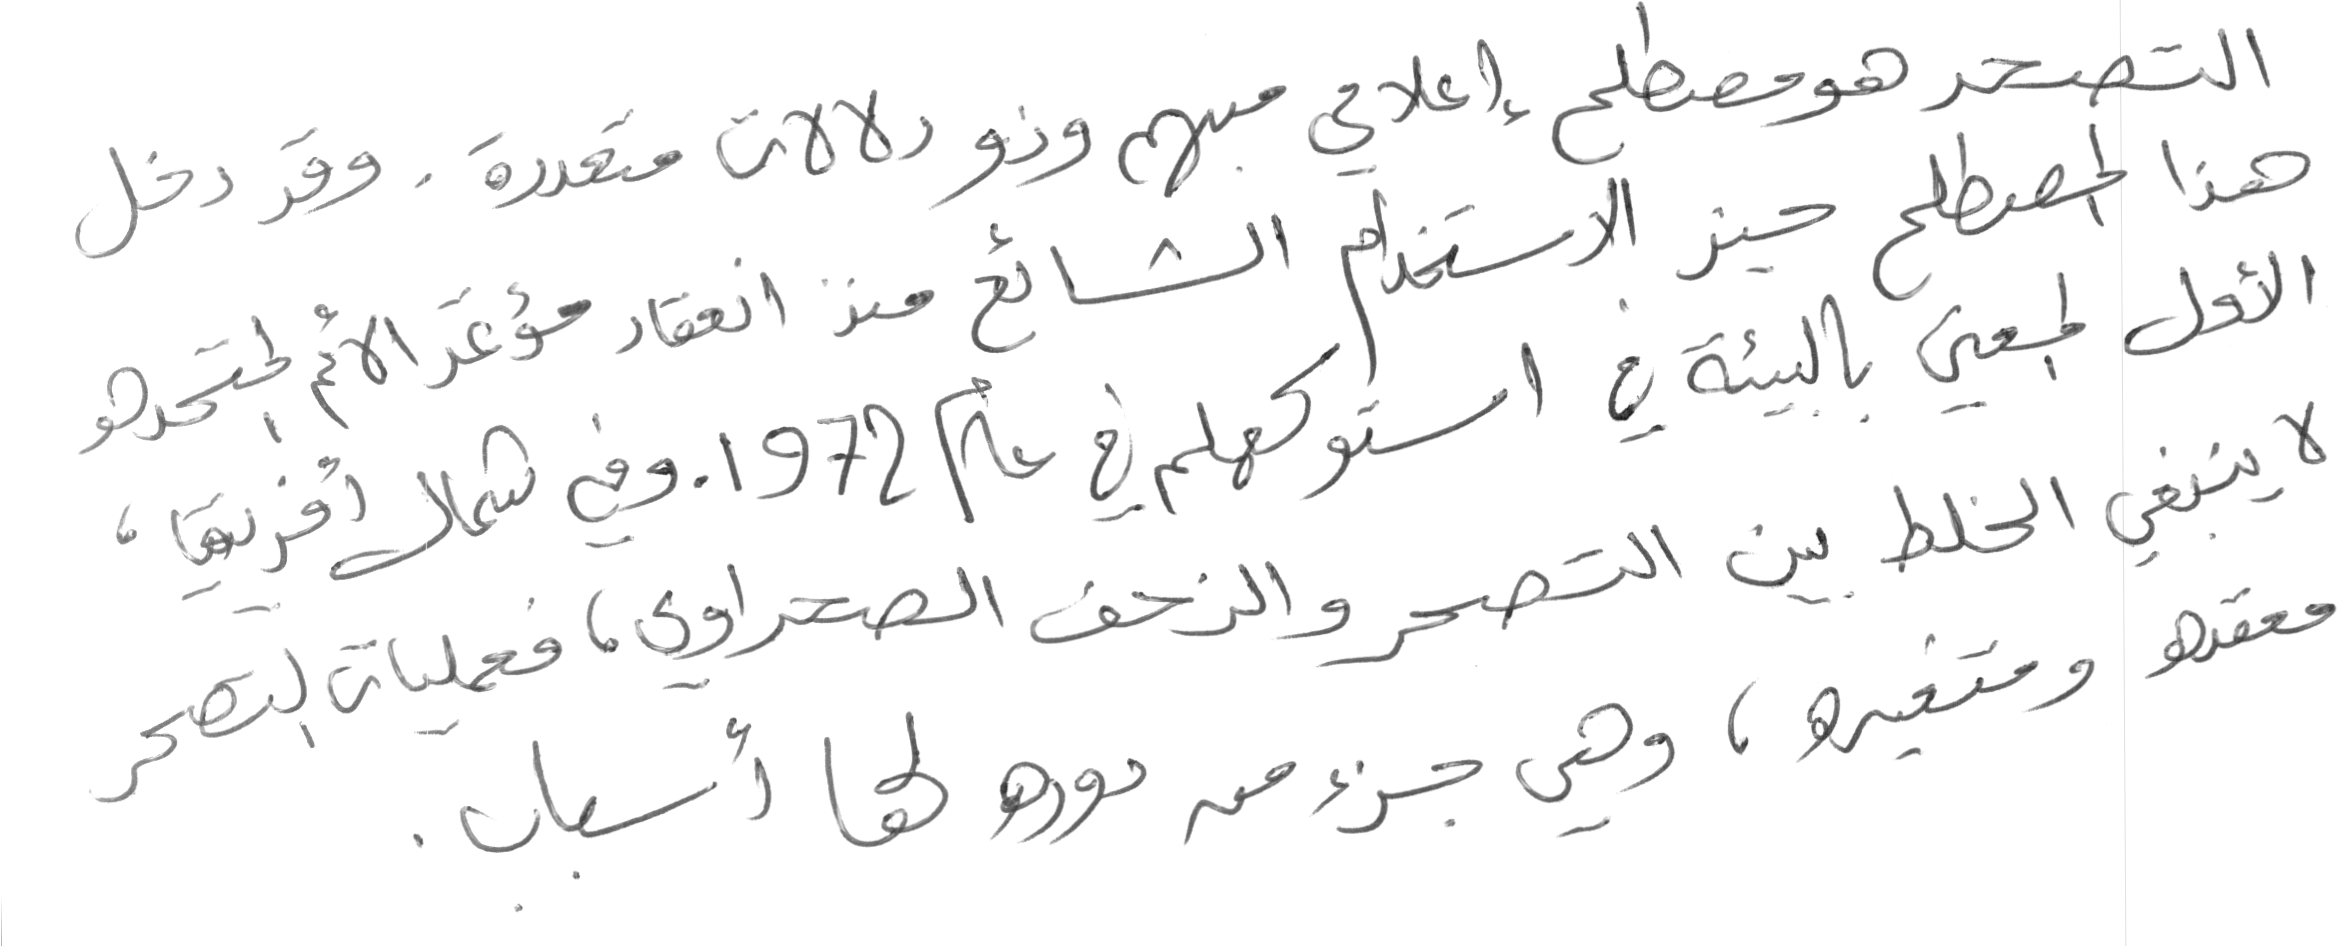 التصحر هو مصطلح إعلامي مبهم وذو دلالات متعددة . وقد دخل
هذا المصطلح حيز الاستخدام الشائع منذ انعقاد مؤتمر الأمم المتحده
الأول المعني بالبيئة في استوكهلم في عام 1972. وفي شمال أفريقيا،
لا ينبغي الخلط بين التصحر والزحف الصحراوي، فعمليات التصحر
معقده ومتغيره، وهي جزء من دوره لها أسباب .